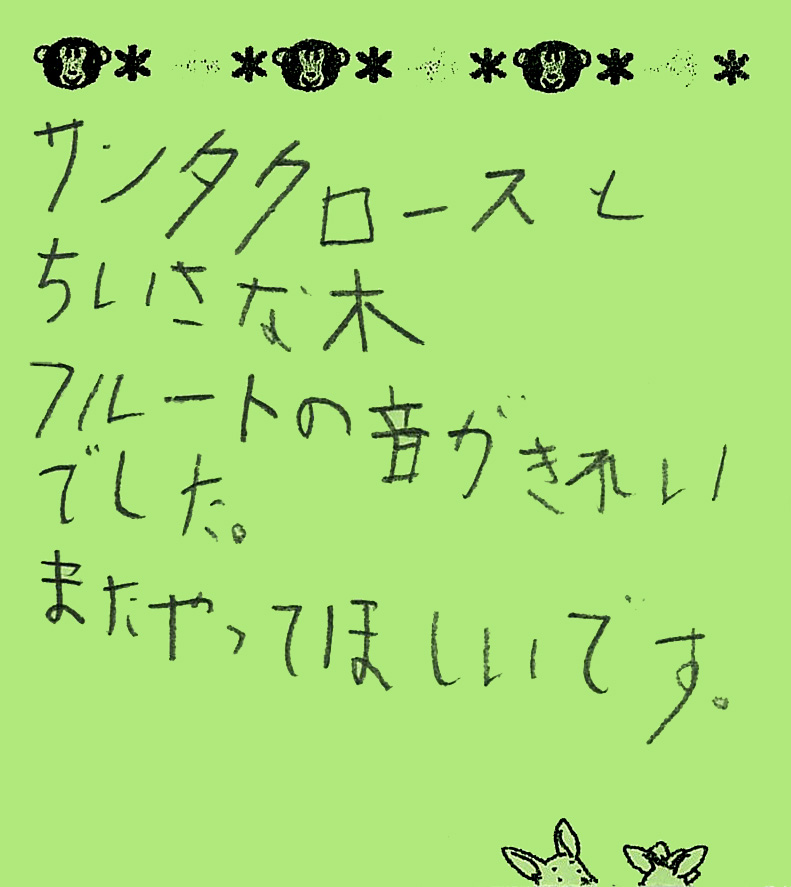 サンタクロースと
ちいさな木
フルートの音がきれい
でした。
またやってほしいです。